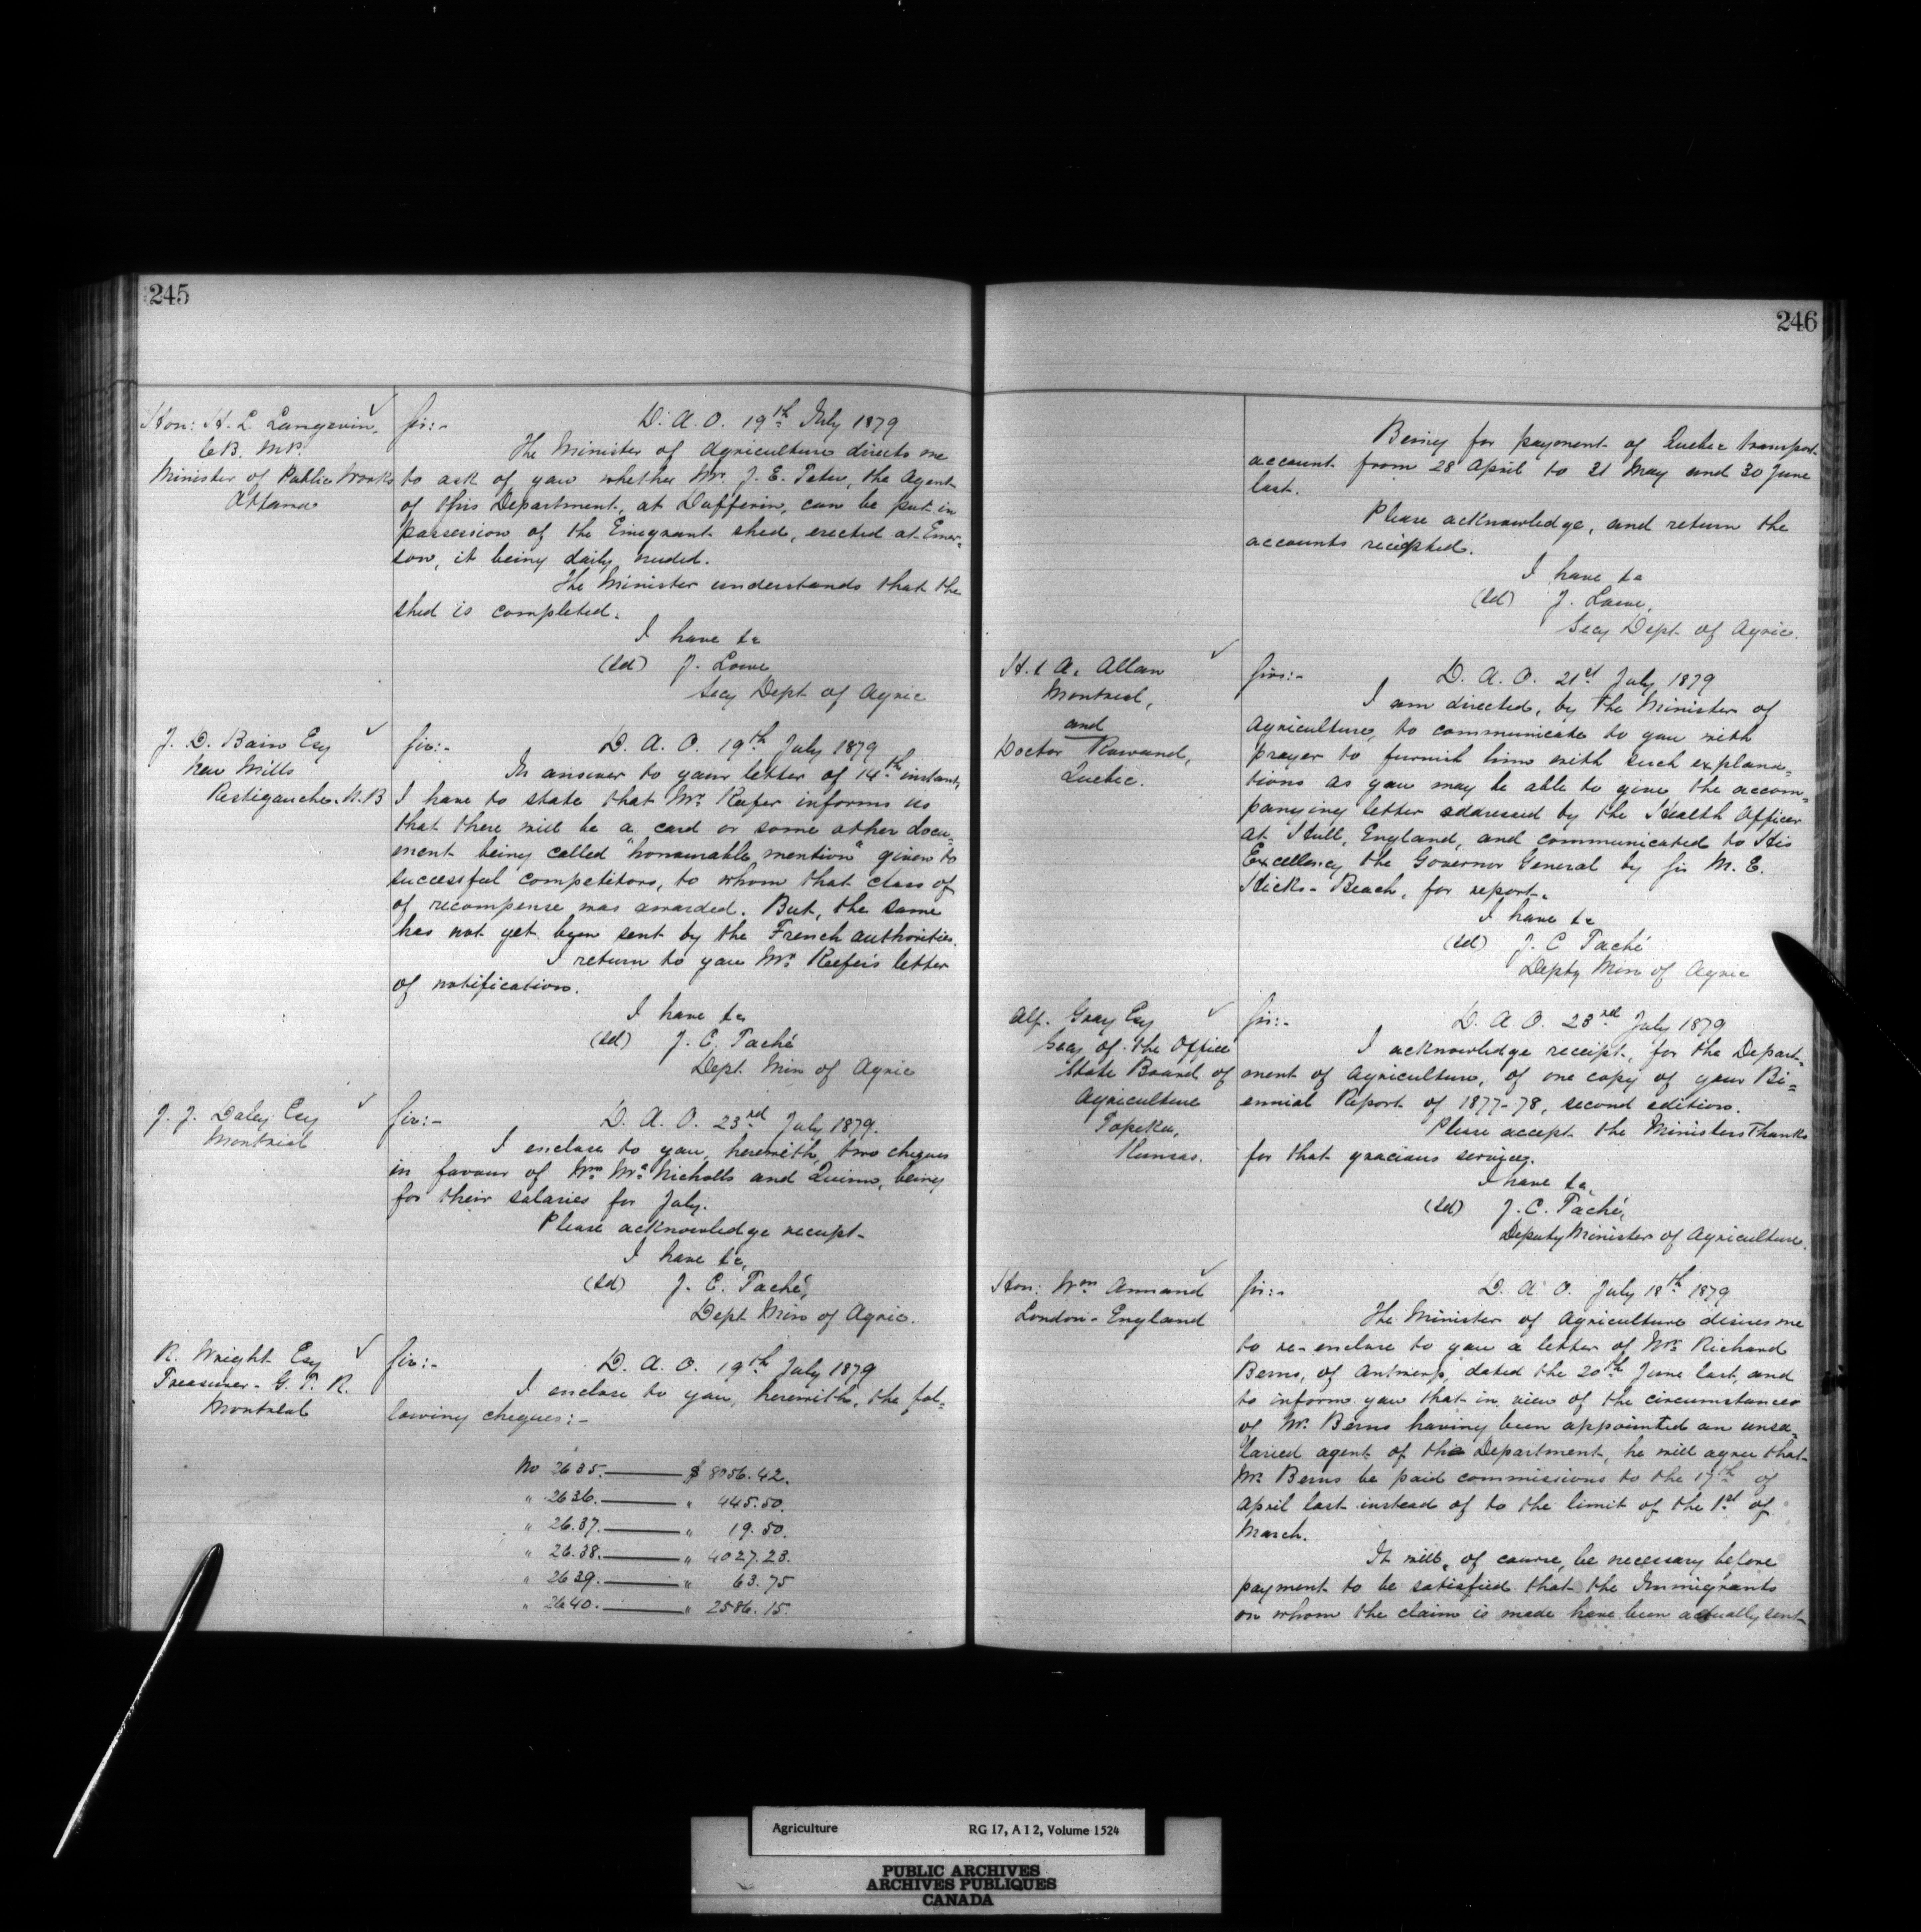 245
Hon: H. L. Langevin,
C.B. M.P.
Minister of Public Works
Ottawa
Sir:-
D. A. O. 19th July 1879
The Minister of Agriculture directs me
to ask of you whether Mr. J. E. Tetu, the Agent
of this Department, at Dufferin, can be put in
possession of the Emigrant shed, erected at Emer=
son, it being daily needed.
The Minister understands that the
shed is completed.
I have &c
(Sd) J. Lowe
Secy Dept of Agric
J. D. Bain Esq
New Mills
Restigouche. N.B
Sir:-
D. A. O. 19th July 1879
In answer to your letter of 14th instant,
I have to state that Mr. Keefer informs us
that there will be a card or some other docu=
ment being called "honourable mention" given to
successful competitors, to whom that class of
of recompense was awarded. But, the same
has not yet been sent by the French authorities.
I return to you Mr. Keefer's letter
of notification.
I have &c
(Sd) J. C. Taché
Dept. Min of Agric
J. J. Daley Esq
Montreal
Sir:-
D. A. O. 23rd July 1879.
I enclose to you, herewith, two cheques
in favour of Mrs Mc.Nicholls and Quinn, being
for their salaries for July.
Please acknowledge receipt-
I have &c,
(Sd) J. C. Taché,
Dept Min of Agric.
R. Wright Esq
Treasurer - G. T. R.
Montreal
Sir:-
D. A. O. 19th July 1879
I enclose to you, herewith, the fol=
lowing cheques:-
No 2635. $ 8956.42.
" 2636. " 445.50.
" 26.37. " 19.50.
" 26.38. " 4027.23.
" 2639. " 63.75
" 2640. " 2586.15.
246
Being for payment of Quebec transport
account from 28 April to 31 May and 30 June
last.
Please acknowledge, and return the
accounts receipted.
I have &c
(Sd) J. Lowe,
Secy Dept of Agric.
H. & A. Allan
Montreal,
and
Doctor Rowand,
Quebec.
Sirs:-
D. A. O. 21st July 1879
I am directed, by the Minister of
Agriculture, to communicate to you with
prayer to furnish him with such explana=
tions as you may be able to give the accom=
panying letter addressed by the Health Officer
at Hull, England, and communicated to His
Excellency the Governor General by Sir M. E.
Hicks-Beach, for report.
I have &c
(Sd) J. C Taché
Depty Min of Agric
Alf. Gray Esq
Secy of the Office
State Board of
Agriculture
Topeka,
Kansas.
Sir:-
D. A. O. 23rd July 1879
I acknowledge receipt, for the Depart=
ment of Agriculture, of one copy of your Bi=
ennial Report of 1877-78, second edition.
Please accept the Ministers Thanks
for that gracious service.
I have &c
(Sd) J. C. Taché,
Deputy Minister of Agriculture.
Hon: Wm Annand
London-England
Sir:-
D. A. O. July 18th 1879
The Minister of Agriculture desires me
to re-enclose to you a letter of Mr. Richard
Berns, of Antwerp, dated the 20th June last, and
to inform you that in view of the circumstances
of Mr. Berns having been appointed an unsa=
laried agent of the Department, he will agree that
Mr. Berns be paid commissions to the 17th of
April last instead of to the limit of the 1st of
March.
It will, of course, be necessary before
payment to be satisfied that the Immigrants
on whom the claim is made have been actually sent
Agriculture RG 17, A I 2, Volume 1524
PUBLIC ARCHIVES
ARCHIVES PUBLIQUES
CANADA